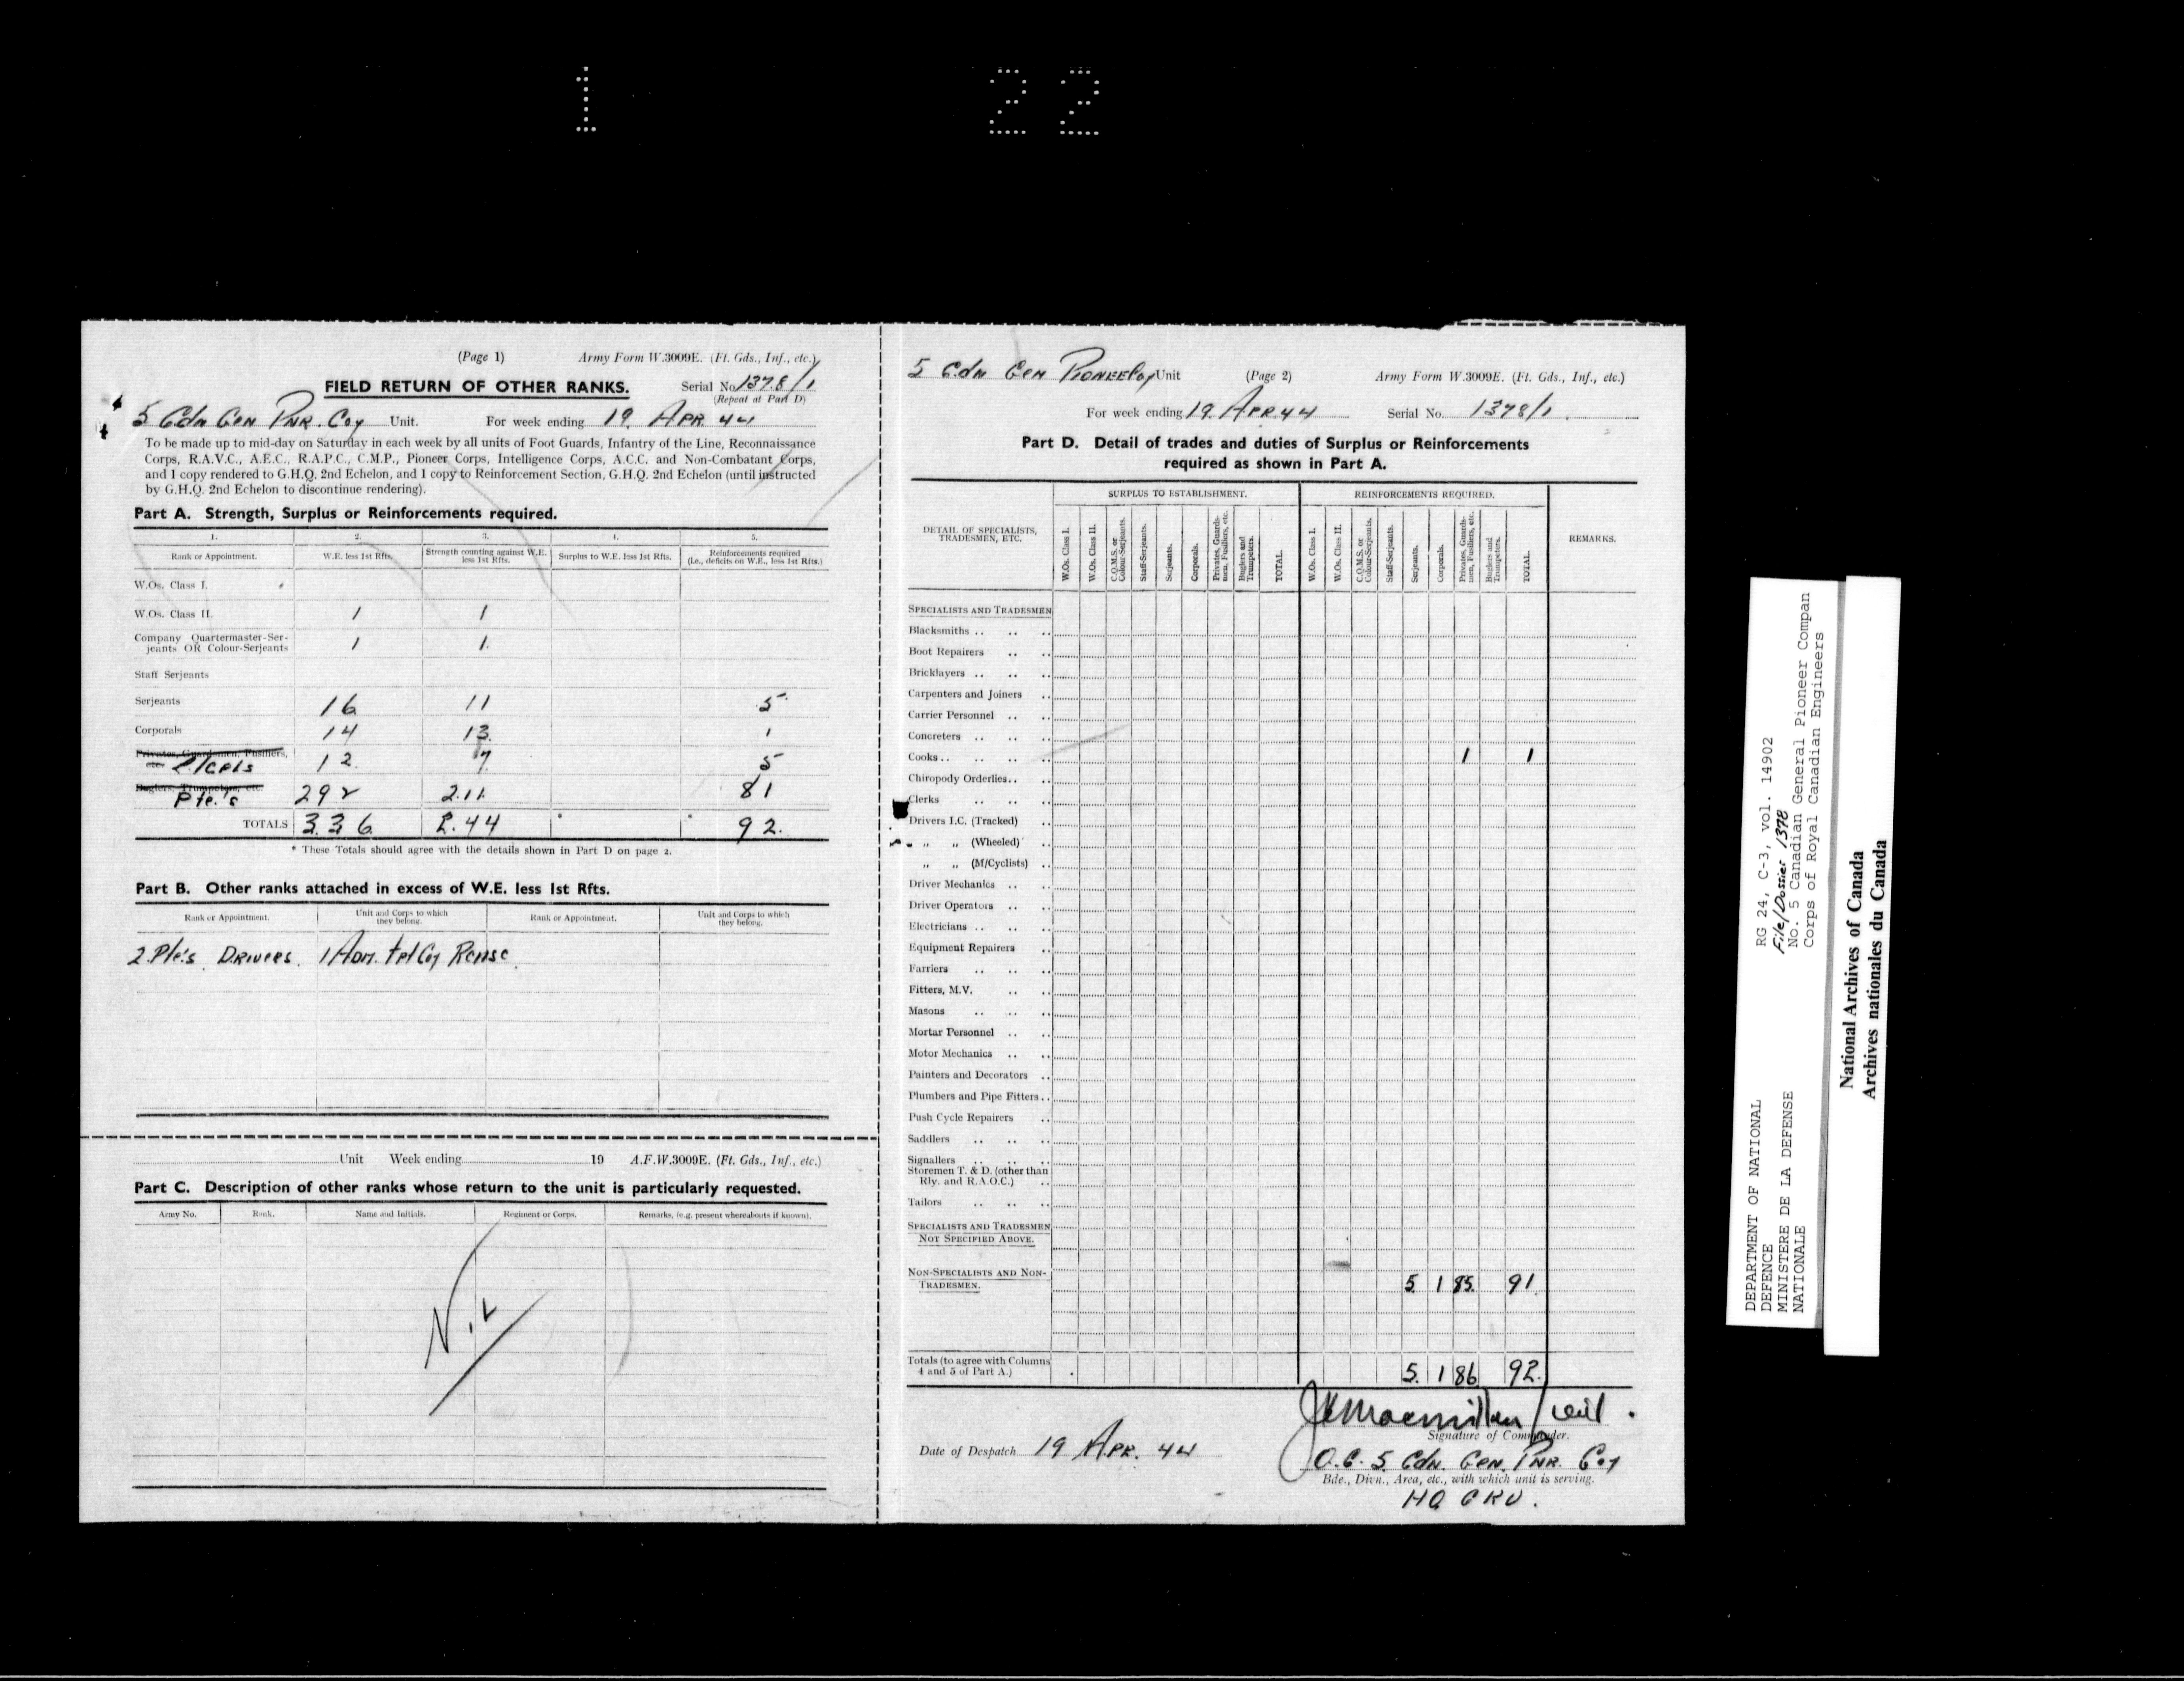 1 22
(Page 1) Army Form W.3009E. (Ft. Gds., Inf., etc.)
FIELD RETURN OF OTHER RANKS. Serial No. 1378/1
(Repeat at Part D)
5 Cdn Gen Pnr. Coy Unit. For week ending 19 Apr 44
To be made up to mid-day on Saturday in each week by all units of Foot Guards, Infantry of the Line, Reconnaissance
Corps, R.A.V.C., A.E.C., R.A.P.C., C.M.P., Pioneer Corps, Intelligence Corps, A.C.C. and Non-Combatant Corps,
and 1 copy rendered to G.H.Q. 2nd Echelon, and 1 copy to Reinforcement Section, G.H.Q. 2nd Echelon (until instructed
by G.H.Q. 2nd Echelon to discontinue rendering).
Part A. Strength, Surplus or Reinforcements required.
1. 2. 3. 4. 5.
Rank or Appointment. W.E. less 1st Rfts. Strength counting against W.E. less 1st Rfts. Surplus to W.E. less 1st Rfts. Reinforcements required (i.e., deficits on W.E., less 1st Rfts.)
W.Os. Class I.
W.Os. Class II. 1 1
Company Quartermaster-Ser-
jeants OR Colour-Serjeants 1 1
Staff Serjeants
Serjeants 16 11 5
Corporals 14 13 1
Privates, Guardsmen, Fusiliers,
etc. L/Cpls 12 7 5
Buglers, Trumpeters, etc.
Pte.'s 292 211 81
TOTALS 336 244 * * 92
* These Totals should agree with the details shown in Part D on page 2.
Part B. Other ranks attached in excess of W.E. less 1st Rfts.
Rank or Appointment. Unit and Corps to which they belong. Rank or Appointment. Unit and Corps to which they belong.
2 Pte's Drivers. 1 Adm. Tpt Coy RCASC
Unit Week ending 19 A.F.W.3009E. (Ft. Gds., Inf., etc.)
Part C. Description of other ranks whose return to the unit is particularly requested.
Army No. Rank. Name and Initials. Regiment or Corps. Remarks, (e.g. present whereabouts if known).
Nil
5 Cdn Gen Pioneer Coy Unit (Page 2) Army Form W.3009E. (Ft. Gds., Inf., etc.)
For week ending 19 Apr 44 Serial No. 1378/1
Part D. Detail of trades and duties of Surplus or Reinforcements
required as shown in Part A.
DETAIL OF SPECIALISTS, TRADESMEN, ETC. SURPLUS TO ESTABLISHMENT. REINFORCEMENTS REQUIRED. REMARKS.
W.Os. Class I. W.Os. Class II. C.Q.M.S. or Colour-Serjeants. Staff-Serjeants. Serjeants. Corporals. Privates, Guardsmen, Fusiliers, etc. Buglers and Trumpeters. TOTAL. W.Os. Class I. W.Os. Class II. C.Q.M.S. or Colour-Serjeants. Staff-Serjeants. Serjeants. Corporals. Privates, Guardsmen, Fusiliers, etc. Buglers and Trumpeters. TOTAL.
SPECIALISTS AND TRADESMEN
Blacksmiths .. .. ..
Boot Repairers .. ..
Bricklayers .. .. ..
Carpenters and Joiners ..
Carrier Personnel .. ..
Concreters .. .. ..
Cooks .. .. .. .. 1 1
Chiropody Orderlies .. ..
Clerks .. .. ..
Drivers I.C. (Tracked) ..
„ „ (Wheeled) ..
„ „ (M/Cyclists) ..
Driver Mechanics .. ..
Driver Operators .. ..
Electricians .. .. ..
Equipment Repairers ..
Farriers .. .. ..
Fitters, M.V. .. ..
Masons .. .. ..
Mortar Personnel .. ..
Motor Mechanics .. ..
Painters and Decorators ..
Plumbers and Pipe Fitters ..
Push Cycle Repairers ..
Saddlers .. .. ..
Signallers .. .. ..
Storemen T. & D. (other than
Rly. and R.A.O.C.) ..
Tailors .. .. ..
SPECIALISTS AND TRADESMEN
NOT SPECIFIED ABOVE.
NON-SPECIALISTS AND NON-
TRADESMEN. 5 1 85 91
Totals (to agree with Columns
4 and 5 of Part A.) 5 1 86 92
Signature of Commander.
Date of Despatch 19 Apr. 44
O.C. 5 Cdn. Gen. Pnr. Coy
Bde., Divn., Area, etc., with which unit is serving.
HQ CRU.
DEPARTMENT OF NATIONAL
DEFENCE
MINISTERE DE LA DEFENSE
NATIONALE
RG 24, C-3, vol. 14902
File/Dossier 1378
No. 5 Canadian General Pioneer Compan
Corps of Royal Canadian Engineers
National Archives of Canada
Archives nationales du Canada